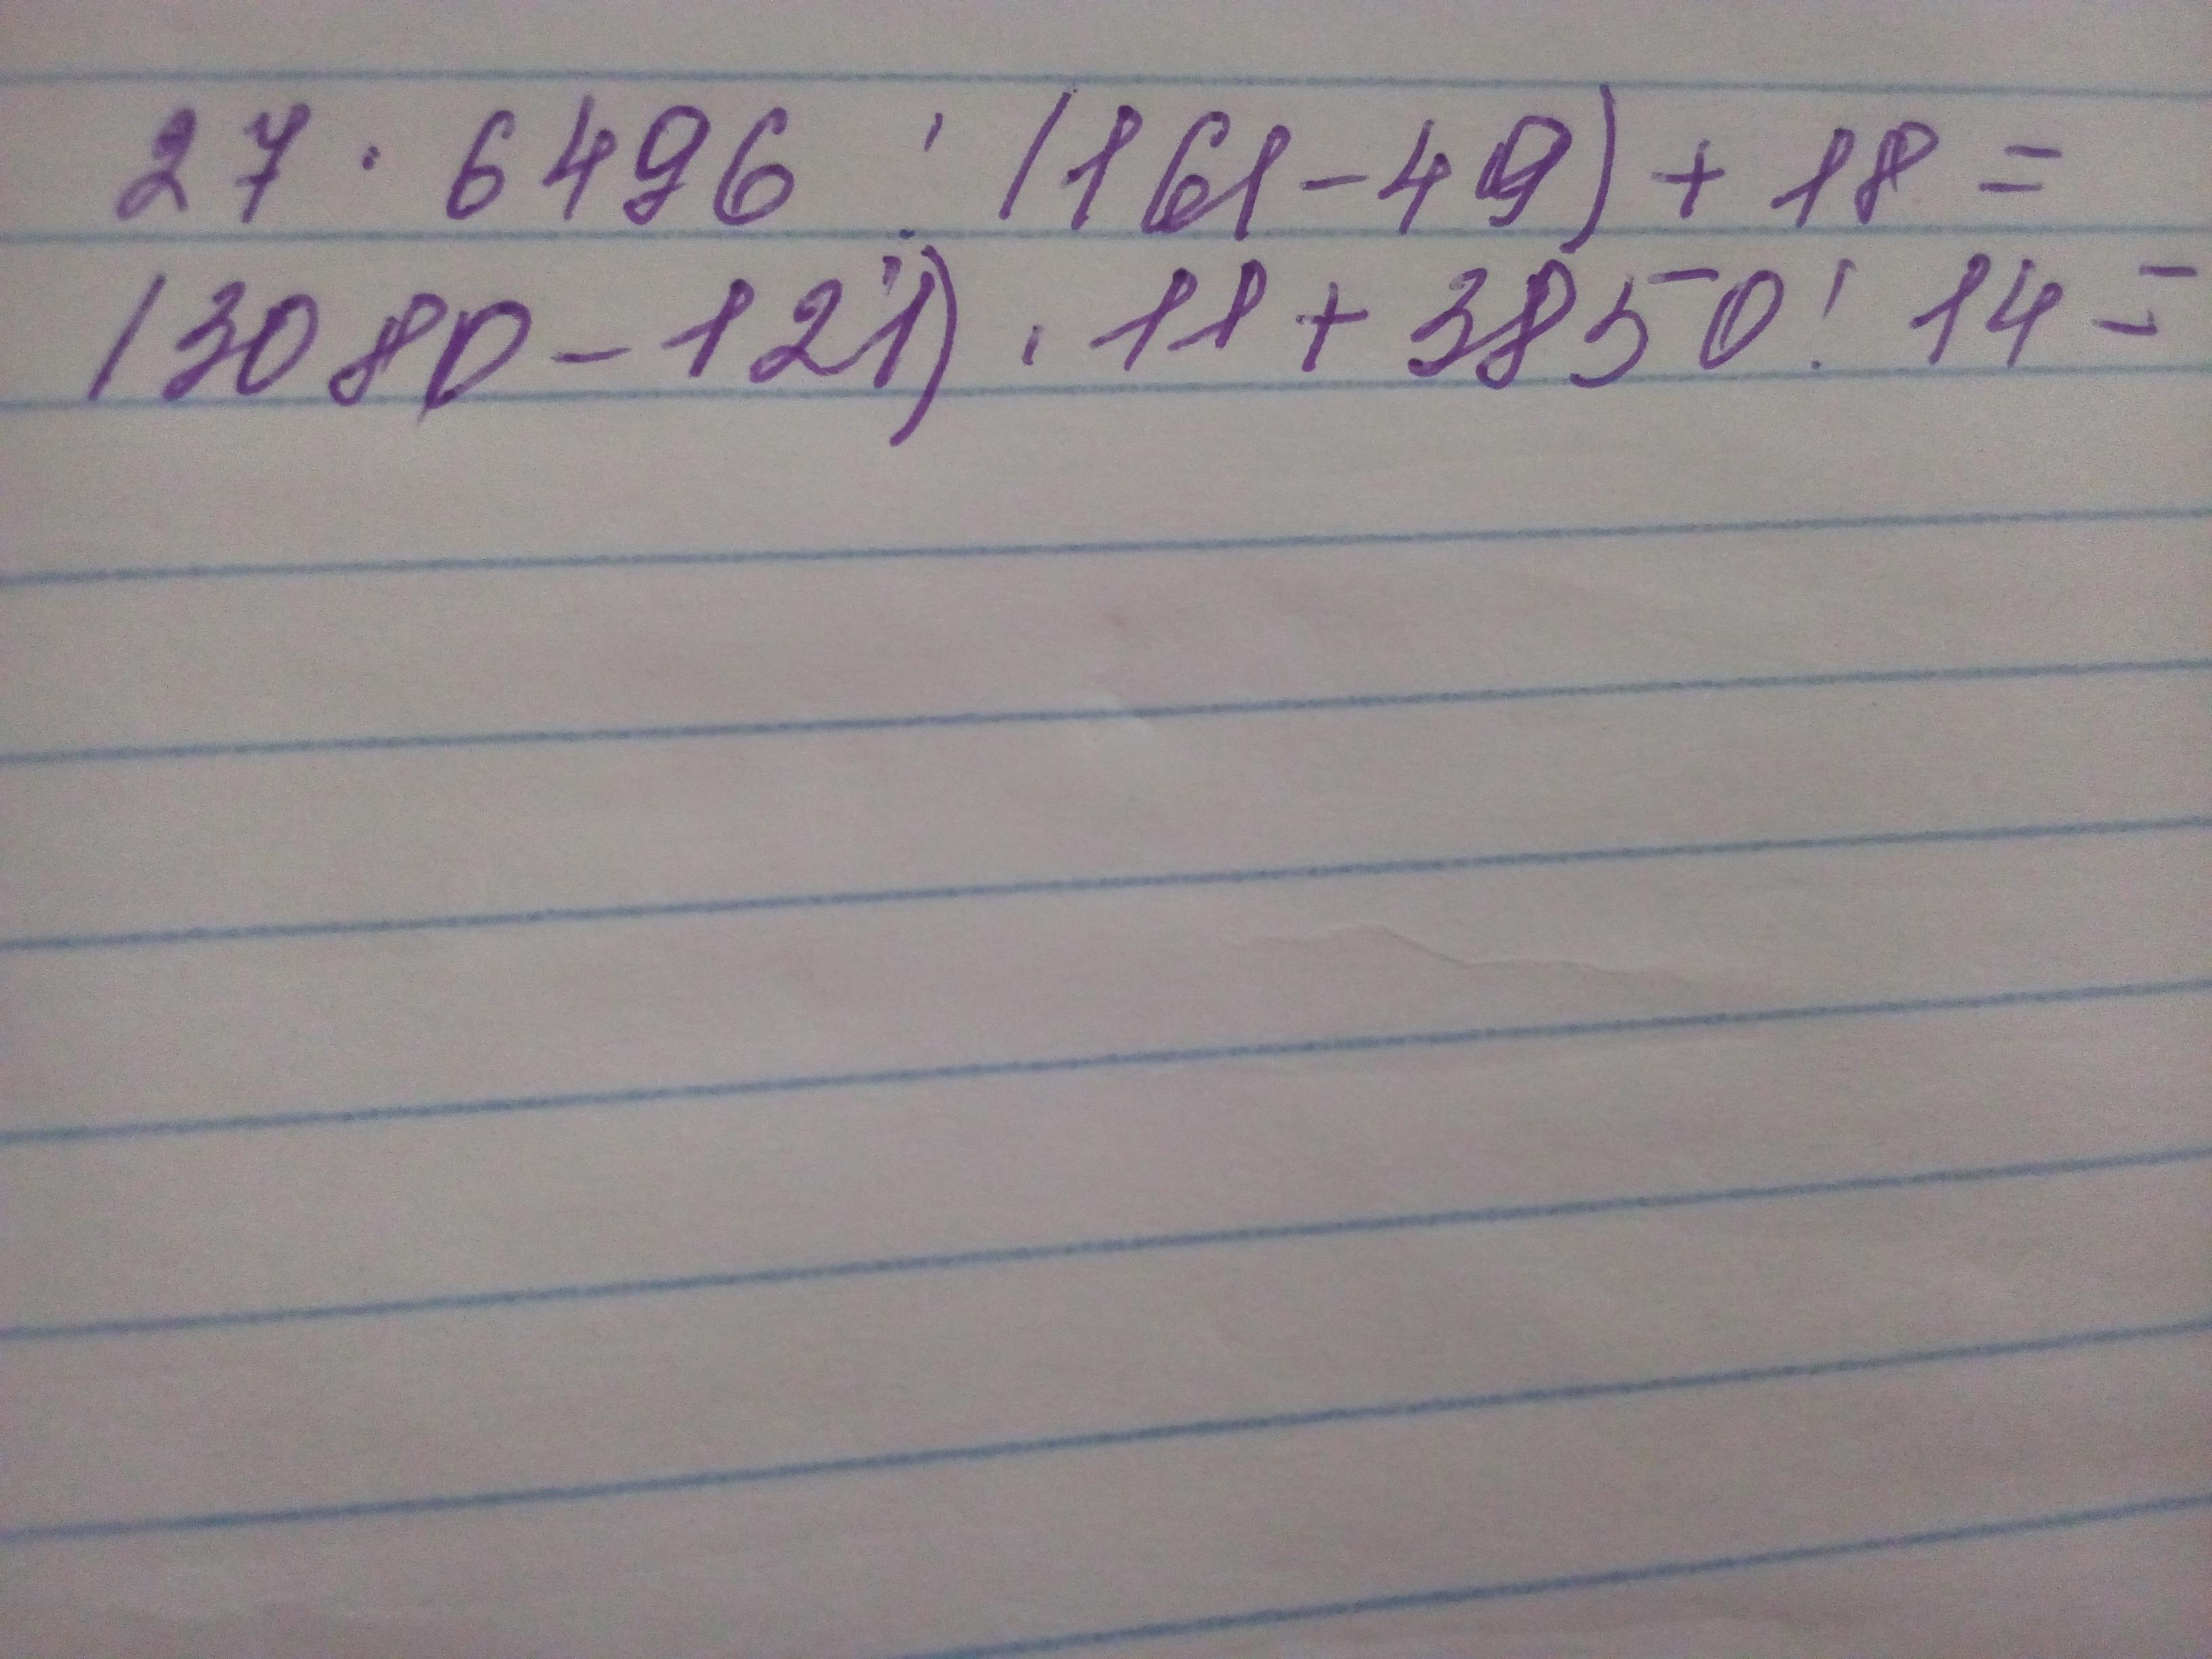 27 · 6496 : (161-49) + 18 =
(3080 - 121) · 11 + 3850 : 14 =